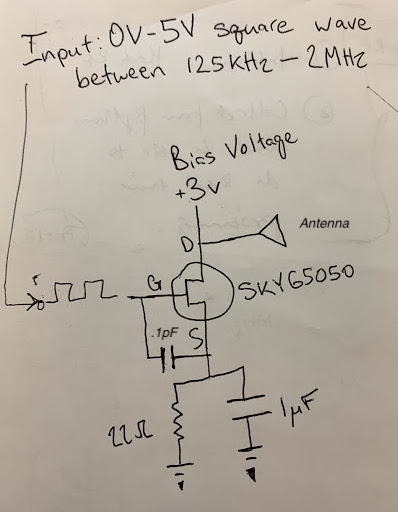 Input: 0V-5V square wave
between 125KHz - 2MHz
Bias Voltage
+3v
D
Antenna
G
SKY65050
.1pF
S
22Ω
1μF